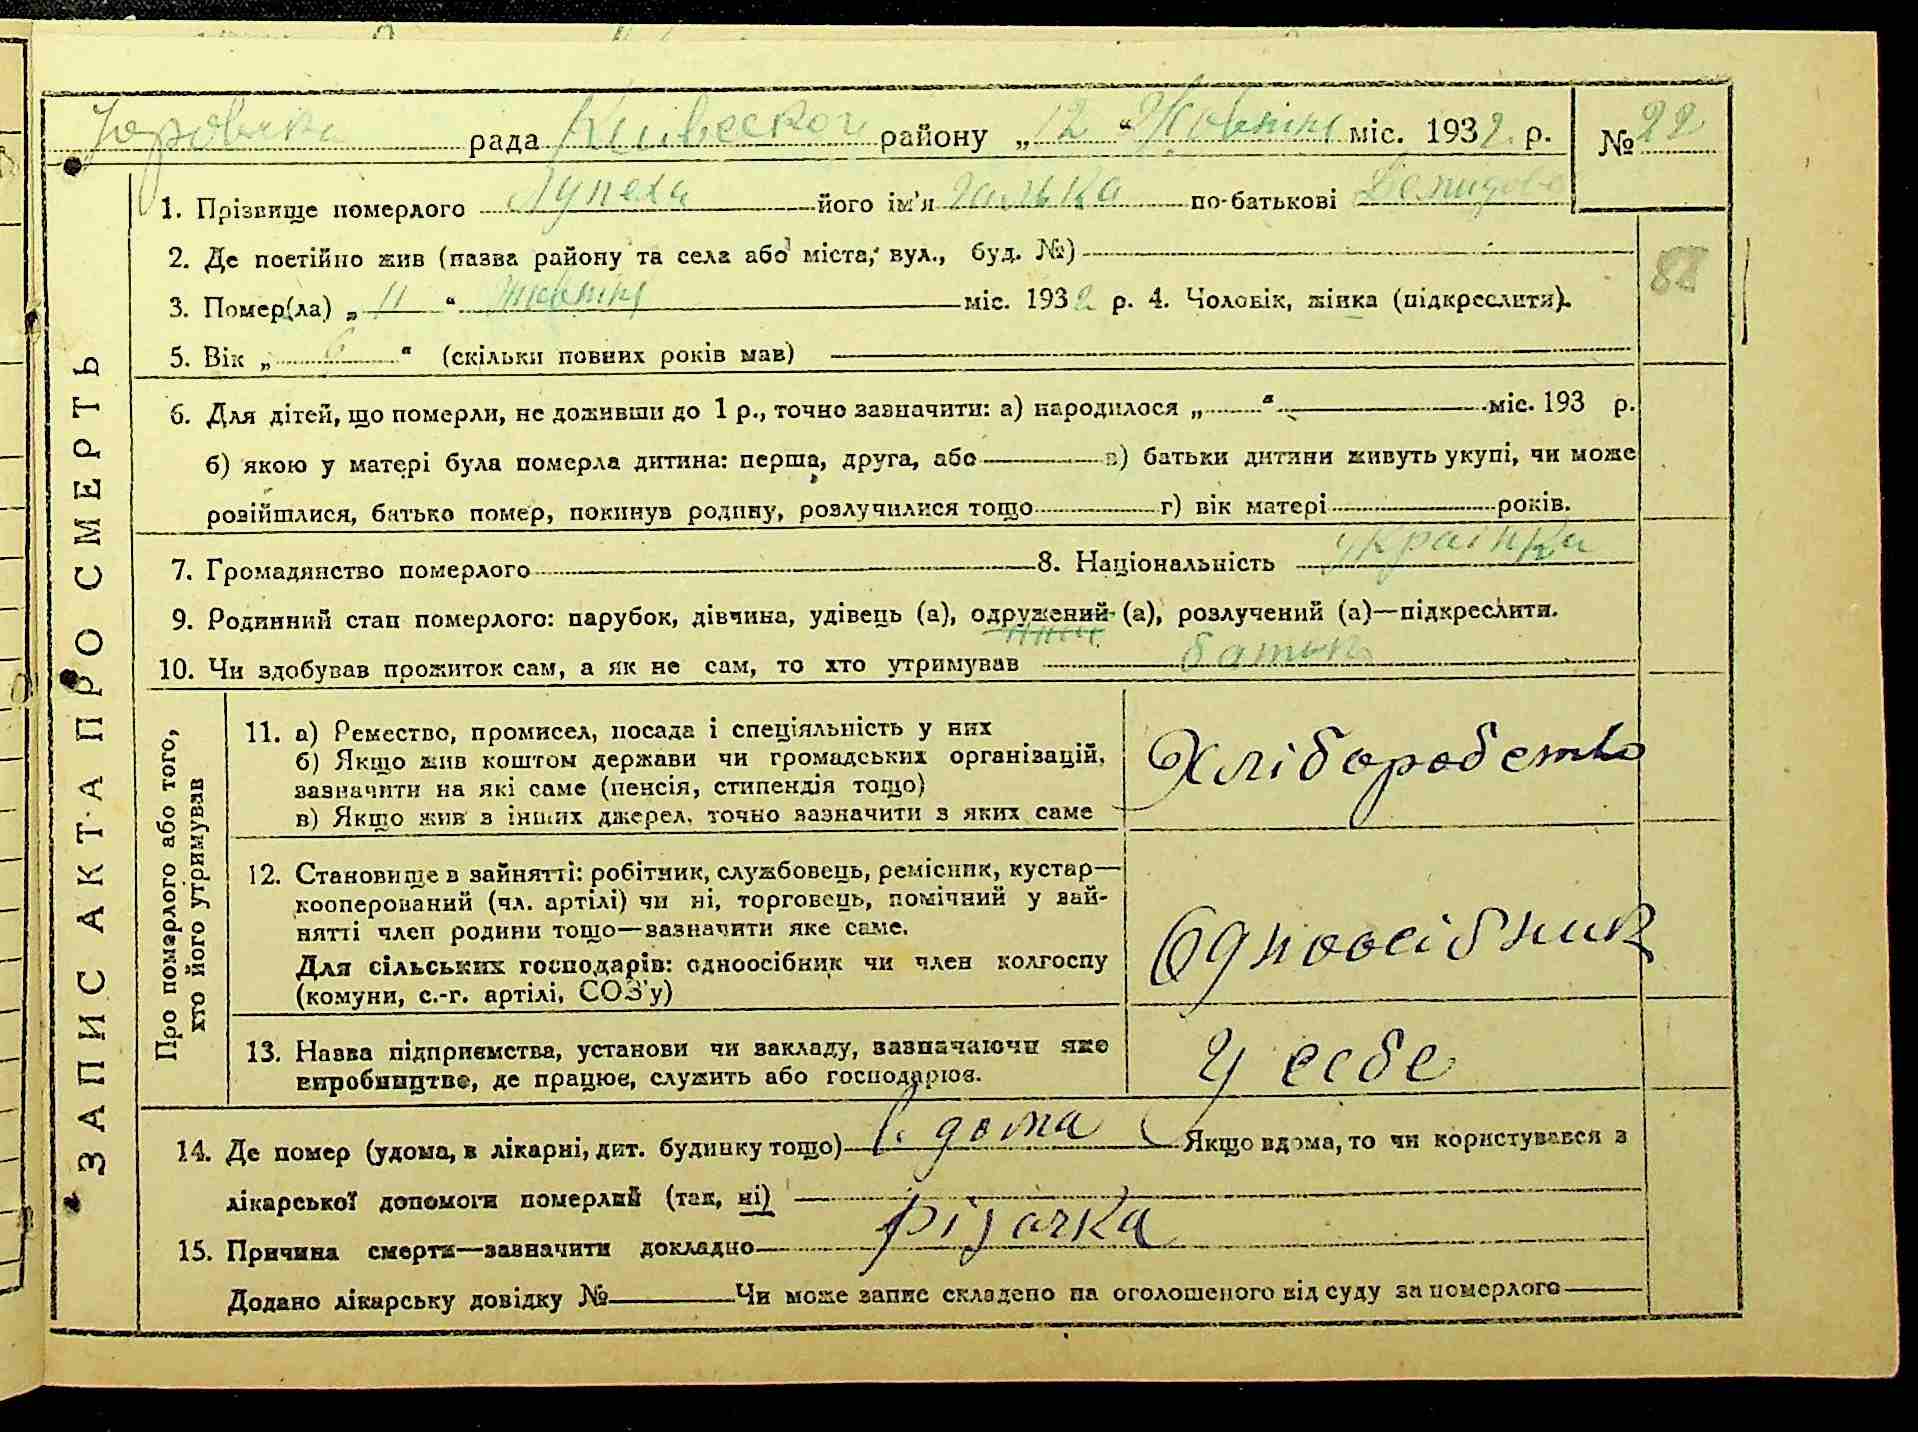 Юровська рада Київского району „12“ Жовтня міс. 1932. р. № 22
1. Прізвище померлого Лупеха його ім'я Галька по-батькові Демидова
2. Де постійно жив (назва району та села або міста, вул., буд. №)
88
3. Помер(ла) „11“ жовтня міс. 1932 р. 4. Чоловік, жінка (підкреслити).
5. Вік „6“ (скільки повних років мав)
6. Для дітей, що померли, не доживши до 1 р., точно зазначити: а) народилося „ “ міс. 193 р.
б) якою у матері була померла дитина: перша, друга, або в) батьки дитини живуть укупі, чи може
розійшлися, батько помер, покинув родину, розлучилися тощо г) вік матері років.
7. Громадянство померлого 8. Національність українка
9. Родинний стан померлого: парубок, дівчина, удівець (а), одружений (а), розлучений (а)—підкреслити.
10. Чи здобував прожиток сам, а як не сам, то хто утримував батьки
ЗАПИС АКТА ПРО СМЕРТЬ
Про померлого або того,
хто його утримував
11. а) Ремество, промисел, посада і спеціяльність у них
б) Якщо жив коштом держави чи громадських організацій,
зазначити на які саме (пенсія, стипендія тощо)
в) Якщо жив з інших джерел, точно зазначити з яких саме
Хліборобство
12. Становище в зайнятті: робітник, службовець, ремісник, кустар—
кооперований (чл. артілі) чи ні, торговець, помічний у зай-
нятті член родини тощо—зазначити яке саме.
Для сільських господарів: одноосібник чи член колгоспу
(комуни, с.-г. артілі, СОЗ'у)
Одноосібник
13. Назва підприємства, установи чи закладу, зазначаючи яке
виробництво, де працює, служить або господарює.
У себе
14. Де помер (удома, в лікарні, дит. будинку тощо) дома Якщо вдома, то чи користувався з
лікарської допомоги померлий (так, ні)
15. Причина смерти—зазначити докладно різачка
Додано лікарську довідку № Чи може запис складено на оголошеного від суду за померлого